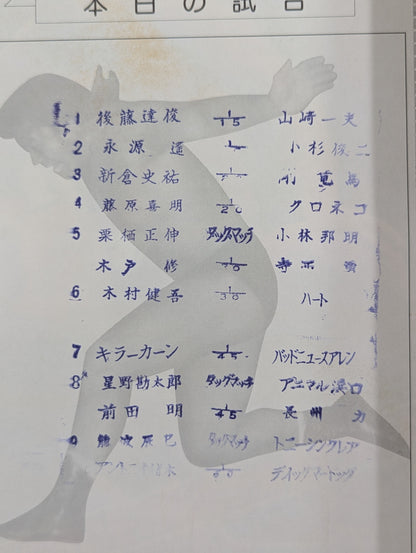 本日の試合
1 後藤達俊 1/15 山崎一夫
2 永源遥 小杉俊二
3 新倉史祐
4 藤原喜明 1/20 クロネコ
5 栗栖正伸 タッグマッチ 小林邦明
木戸修
6 木村健吾 1/30 ハート
7 キラーカーン 1/45 バッドニュースアレン
8 星野勘太郎 タッグマッチ アニマル浜口
前田明 1/45 長州力
9 辰巳 タッグマッチ トニーシンクレア